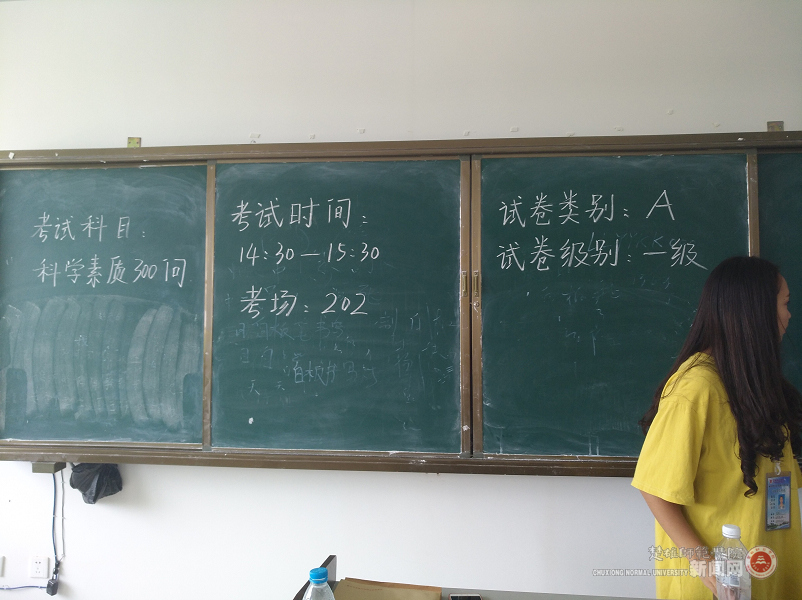 考试科目:
科学素质300问
考试时间:
14:30—15:30
考场:202
试卷类别:A
试卷级别:一级
楚雄师范学院
CHUXIONG NORMAL UNIVERSITY
新闻网